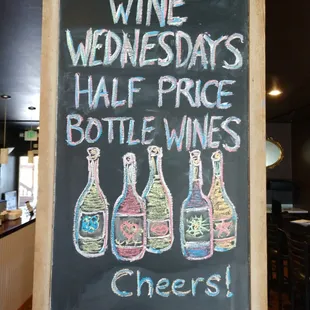 WINE
WEDNESDAYS
HALF PRICE
BOTTLE WINES
Cheers!